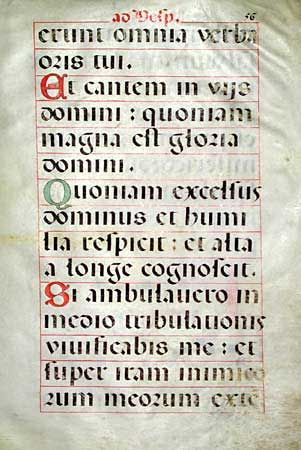 ad Vesp. 56
erunt omnia verba
oris tui.
Et cantem in vijs
domini : quoniam
magna est gloria
domini.
Quoniam excelsus
dominus et humi
lia respicit : et alta
a longe cognoscit.
Si ambulavero in
medio tribulationis
vivificabis me : et
super iram inimico
rum meorum exte